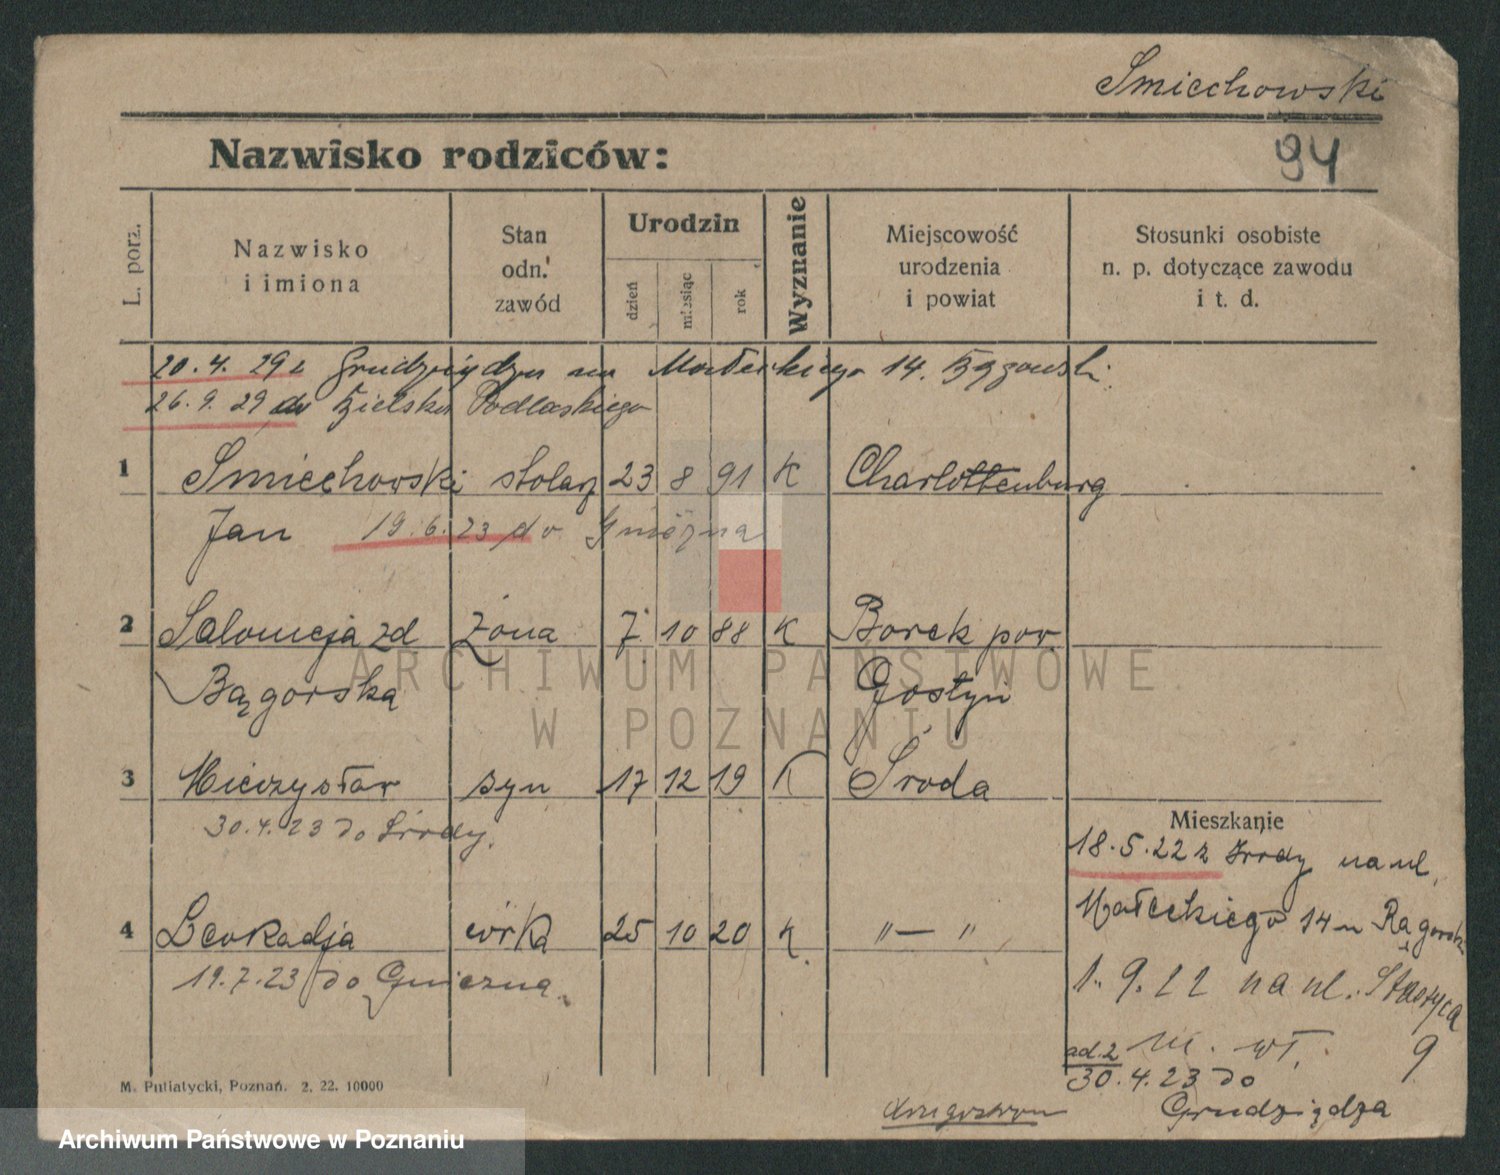 Smiechowski
94
Nazwisko rodziców:
L. porz.
Nazwisko
i imiona
Stan
odn.
zawód
Urodzin
dzień
miesiąc
rok
Wyznanie
Miejscowość
urodzenia
i powiat
Stosunki osobiste
n. p. dotyczące zawodu
i t. d.
20.4.29 z Grudziądza na Małeckiego 14.
26.9.29 do Bielska Podlaskiego
1 Smiechowski stolarz 23 8 91 K Charlottenburg
Jan 19.6.23 do Gniezna
2 Salomeja zd żona 7 10 88 K Borek pow.
Bągorska Gostyń
3 Mieczysław syn 17 12 19 K Środa
30.4.23 do Środy.
4 Leokadja córka 25 10 20 K "—"
19.7.23 do Gniezna.
Mieszkanie
18.5.22 z Środy na ul.
Małeckiego 14 u
1.9.22 na ul. Staszyca
m. wł. 9
ad. 2
30.4.23 do
Grudziądza
M. Putiatycki, Poznań. 2. 22. 10000
ARCHIWUM PAŃSTWOWE
W POZNANIU
Archiwum Państwowe w Poznaniu